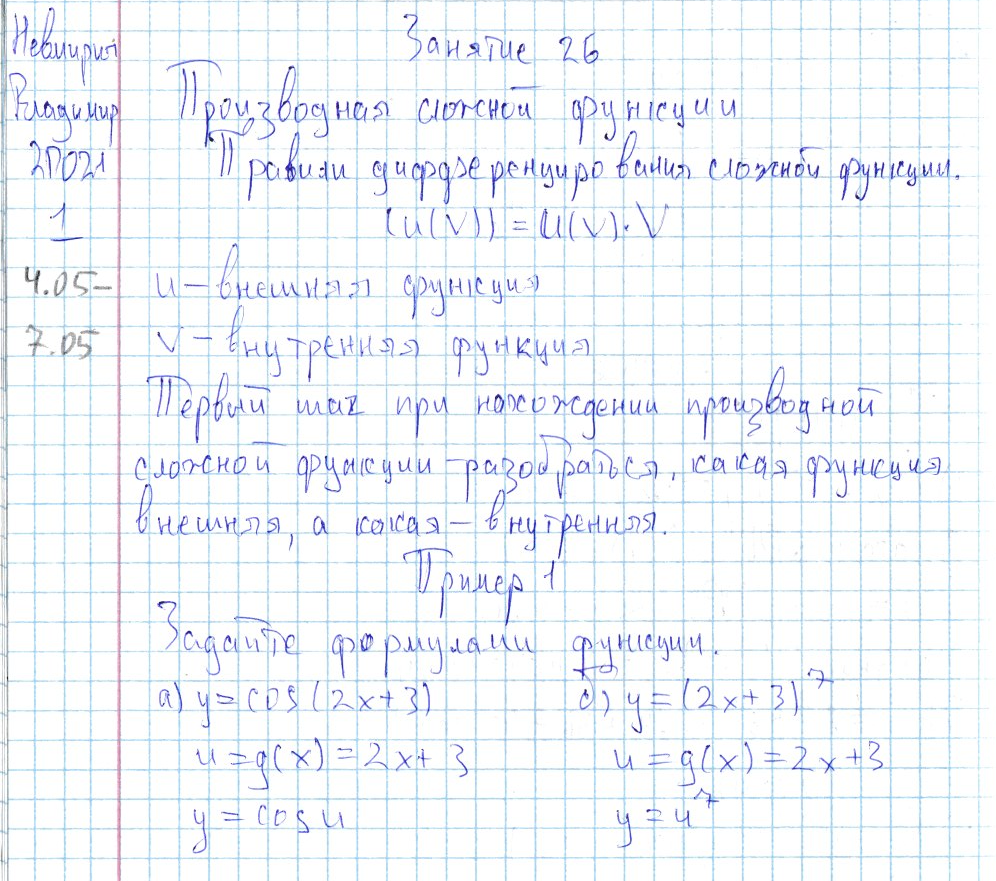 Занятие 26
Владимир
Производная сложной функции
2П021
Правили дифференцирования сложной функции.
1
(u(V)) = u(V)·V
4.05-
u – внешняя функция
7.05
V – внутренняя функция
Первый шаг при нахождении производной
сложной функции – разобраться, какая функция
внешняя, а какая – внутренняя.
Пример 1
Задайте формулами функции.
а) y = cos(2x+3)
б) y = (2x+3)⁷
u = g(x) = 2x+3
u = g(x) = 2x+3
y = cos u
y = u⁷